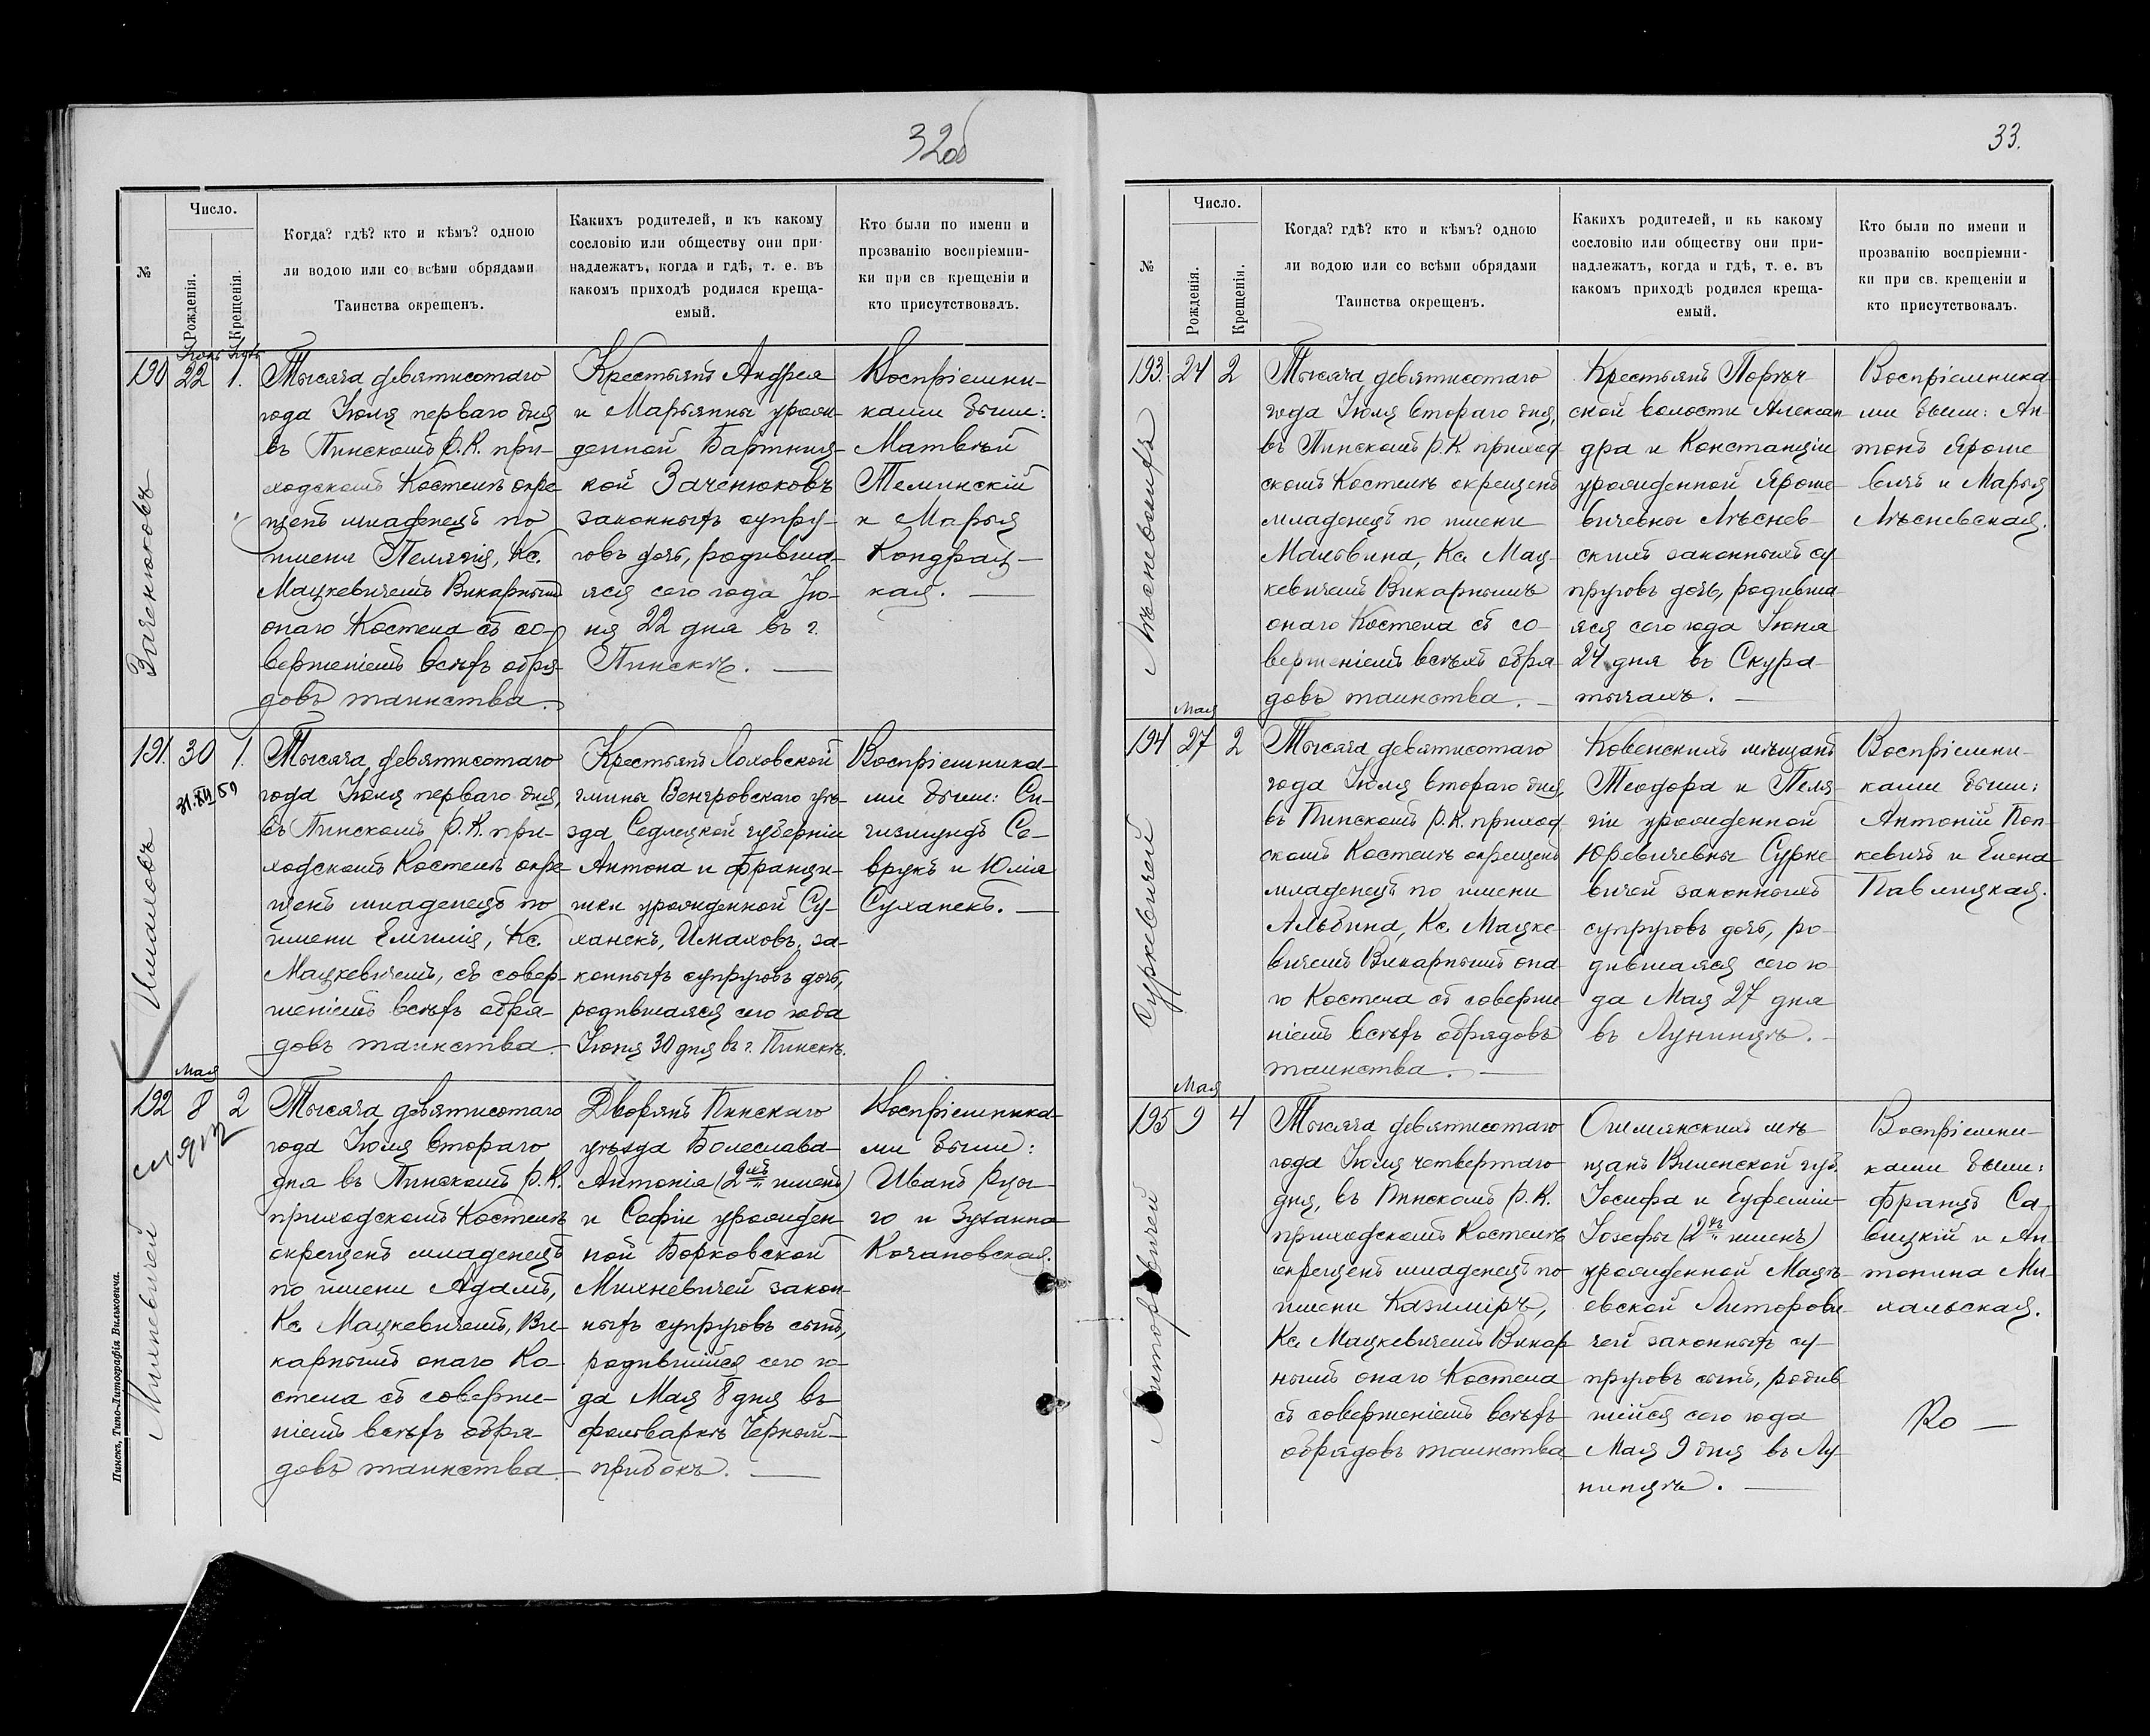 32об
№
Число.
Рожденія.
Крещенія.
Когда? гдѣ? кто и кѣмъ? одною
ли водою или со всѣми обрядами
Таинства окрещенъ.
Какихъ родителей, и къ какому
сословію или обществу они при-
надлежатъ, когда и гдѣ, т. е. въ
какомъ приходѣ родился креща-
емый.
Кто были по имени и
прозванію воспріемни-
ки при св крещеніи и
кто присутствовалъ.
190
Іюнь
22
Іюль
1.
Заченюковъ
Тысяча девятисотаго
года Іюля перваго дня
въ Пинскомъ Р. К. при-
ходскомъ Костелѣ окре
щенъ младенецъ по
имени Пелягія, Кс.
Мацкевичемъ Викарнымъ
онаго Костела съ со-
вершеніемъ всѣхъ обря-
довъ таинства.
Крестьянъ Андрея
и Марьянны урож-
денной Бартниц-
кой Заченюковъ
законныхъ супру-
говъ дочь, родивша-
яся сего года Ію-
ня 22 дня въ г.
Пинскѣ.
Воспріемни-
ками были:
Матвѣй
Телинскій
и Марья
Кондрац-
кая.
191.
30
1.
31.XII 59
Ималовъ
Тысяча девятисотаго
года Іюля перваго дня,
въ Пинскомъ Р. К. при-
ходскомъ Костелѣ окре-
щенъ младенецъ по
имени Емилія, Кс.
Мацкевичемъ, съ совер-
шеніемъ всѣхъ обря-
довъ таинства.
Крестьянъ Лоховской
гмины Венгровскаго уѣ-
зда Седлецкой губерніи
Антона и Францы-
шки урожденной Су-
ханекъ, Ималовъ, за-
конныхъ супруговъ дочь,
родившаяся сего года
Іюня 30 дня въ г. Пинскѣ.
Воспріемника-
ми были: Си-
гизмундъ Се-
врукъ и Юлія
Суханекъ.
192
Мая
8
2
Михневичей
Тысяча девятисотаго
года Іюля втораго
дня въ Пинскомъ Р. К.
приходскомъ Костелѣ
окрещенъ младенецъ
по имени Адамъ,
Кс. Мацкевичемъ, Ви-
карнымъ онаго Ко-
стела съ соверше-
ніемъ всѣхъ обря-
довъ таинства.
Дворянъ Пинскаго
уѣзда Болеслава-
Антонія (2хъ именъ)
и Софіи урожден-
ной Борковской
Михневичей закон-
ныхъ супруговъ сынъ,
родившійся сего го-
да Мая 8 дня въ
фольваркѣ Черной-
прибокѣ.
Воспріемника-
ми были:
Иванъ
го и Зузанна
Качановская.
Пинскъ, Типо-Литографія Вильковича.
33.
№
Число.
Рожденія.
Крещенія.
Когда? гдѣ? кто и кѣмъ? одною
ли водою или со всѣми обрядами
Таинства окрещенъ.
Какихъ родителей, и къ какому
сословію или обществу они при-
надлежатъ, когда и гдѣ, т. е. въ
какомъ приходѣ родился креща-
емый.
Кто были по имени и
прозванію воспріемни-
ки при св. крещеніи и
кто присутствовалъ.
193.
24
2
Лѣсневскихъ
Тысяча девятисотаго
года Іюля втораго дня,
въ Пинскомъ Р. К. приход
скомъ Костелѣ окрещенъ
младенецъ по имени
Мальвина, Кс. Мац-
кевичемъ Викарнымъ
онаго Костела съ со-
вершеніемъ всѣхъ обря-
довъ таинства.
Крестьянъ Порѣч-
ской волости Алексан-
дра и Констанціи
урожденной Яроше-
вичевны Лѣснев-
скихъ законныхъ су-
пруговъ дочь, родивша-
яся сего года Іюня
24 дня въ Скура-
тычахъ.
Воспріемника-
ми были: Ан-
тонъ Яроше
вичъ и Марья
Лѣсневская.
194
Мая
27
2
Суркевичей
Тысяча девятисотаго
года Іюля втораго дня,
въ Пинскомъ Р. К. приход
скомъ Костелѣ окрещенъ
младенецъ по имени
Альбина, Кс. Мацке-
вичемъ Викарнымъ она-
го Костела съ соверше
ніемъ всѣхъ обрядовъ
таинства.
Ковенскихъ мѣщанъ
Теодора и Пеля-
гіи урожденной
Юревичевны Сурке-
вичей законныхъ
супруговъ дочь, ро-
дившаяся сего го-
да Мая 27 дня
въ Лунинцѣ.
Воспріемни-
ками были:
Антоній Поп-
кевичъ и Елена
Павлицкая.
195
Мая
9
4
Тысяча девятисотаго
года Іюля четвертаго
дня, въ Пинскомъ Р. К.
приходскомъ Костелѣ
окрещенъ младенецъ по
имени Казиміръ,
Кс. Мацкевичемъ Викар-
нымъ онаго Костела
съ совершеніемъ всѣхъ
обрядовъ таинства.
Ошмянскихъ мѣ-
щанъ Виленской губ.
Іосифа и Еуфеміи-
Іозефы (2хъ именъ)
урожденной Мацѣ-
евской Литорови-
чей законныхъ су-
пруговъ сынъ, родив-
шійся сего года
Мая 9 дня въ Лу-
нинцѣ.
Воспріемни-
ками были:
Францъ Са-
вицкій и Ан-
тонина Ми-
хальская.
Ко —